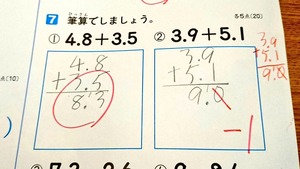 7 筆算でしましょう。 5・5点(20)
① 4.8+3.5 ② 3.9+5.1
4.8
+3.5
8.3
3.9
+5.1
9.0
-1
3.9
+5.1
9.0
点(10)